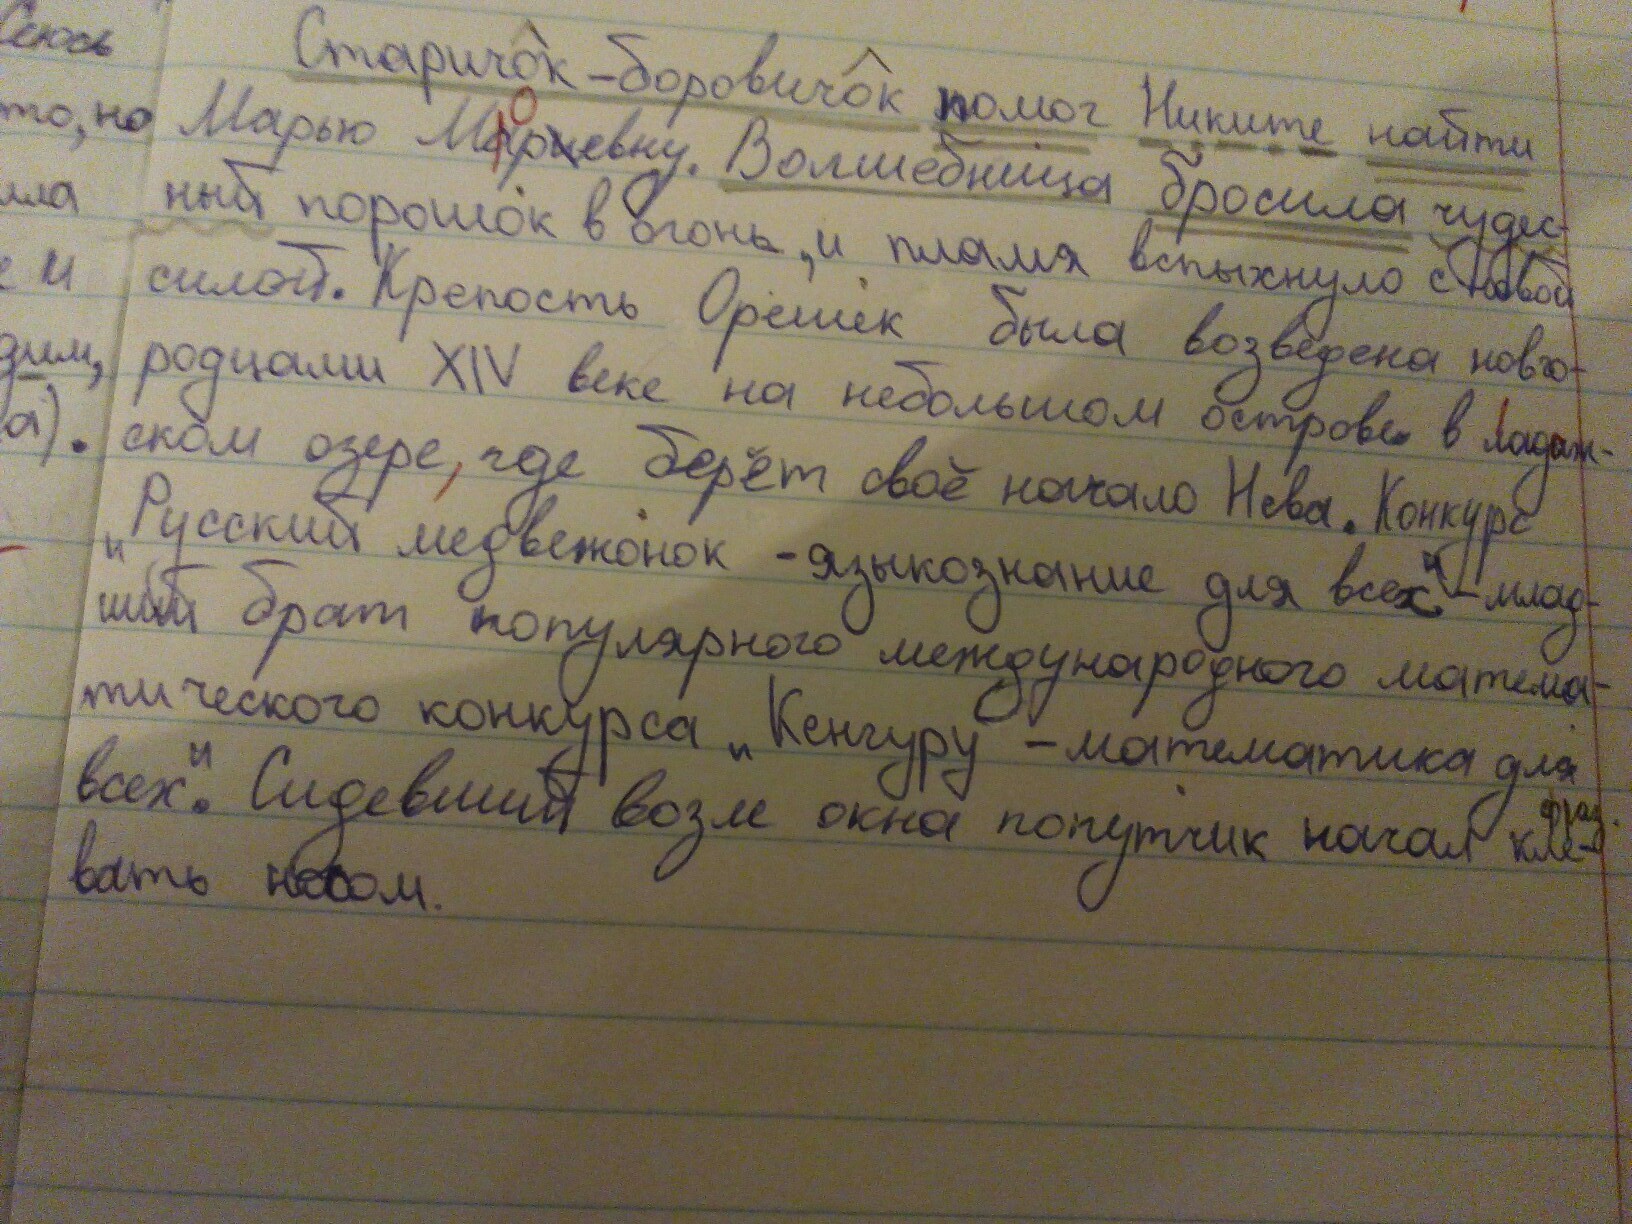 Старичок-боровичок помог Никите найти
то, но Марью Моревну. Волшебница бросила чудес-
ила ный порошок в огонь, и пламя вспыхнуло с новой
е и силой. Крепость Орешек была возведена новго-
дим, родцами XIV веке на небольшом острове в Ладож-
а). ском озере, где берёт своё начало Нева. Конкурс
„Русский медвежонок - языкознание для всех" - млад-
ший брат популярного международного матема-
тического конкурса „Кенгуру - математика для
всех". Сидевший возле окна попутчик начал кле-
фраз.
вать носом.